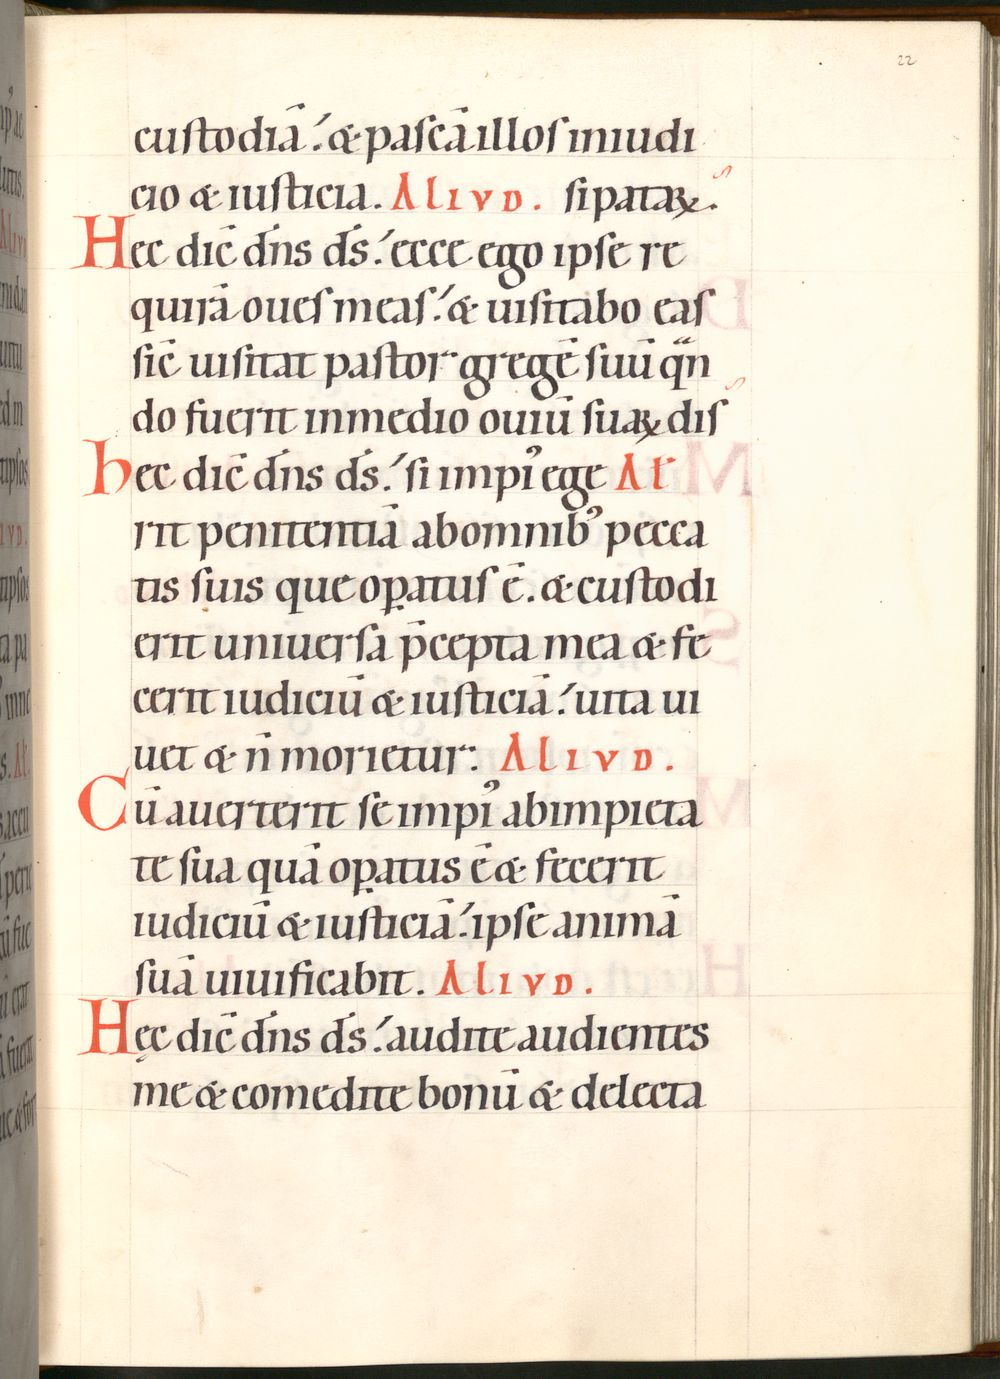 22
custodiā. & pascā illos iniudi
cio & iusticia. Alıvd. sipatarꝝ.
Hec dic̄ dn̄s ds̄. ecce ego ipse re
quirā oues meas. & uisitabo eas
sic̄ uisitat pastor gregē suū qn̄
do fuerit inmedio ouiū suaꝝ dis
hec dic̄ dn̄s ds̄. si impi᾽ ege Al̄
rit penitentiā abomnib᾽ pecca
tis suis que oꝑatus ē. & custodi
erit uniuersa p̄cepta mea & fe
cerit iudiciū & iusticiā. uita ui
uet & n̄ morietur: Alıvd.
Cū auerterit se impi᾽ abimpieta
te sua quā oꝑatus ē & fecerit
iudiciū & iusticiā. ipse animā
suā uiuificabit. Alıvd.
Hęc dic̄ dn̄s ds̄. audite audientes
me & comedite bonū & delecta